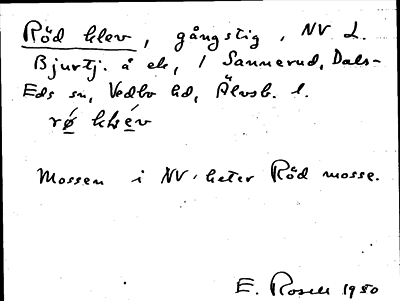 Röd klev, gångstig, NV L.
Bjurtj. å ek, / Sannerud, Dals-
Eds sn, Vedbo hd, Älvsb. l.
rǿ klév
Mossen i NV heter Röd mosse.
E. Rosell 1980